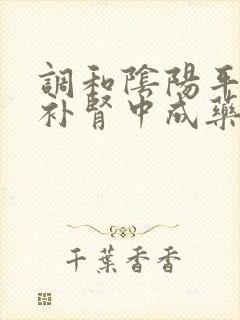 調和陰陽平
补腎中成藥
千葉香香